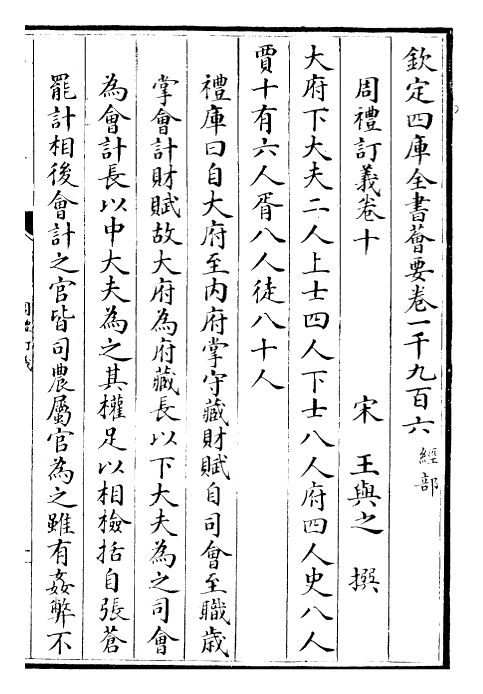 欽定四庫全書薈要卷一千九百六 經部
周禮訂義卷十
宋 王與之 撰
大府下大夫二人上士四人下士八人府四人史八人
賈十有六人胥八人徒八十人
禮庫曰自大府至内府掌守藏財賦自司會至職歳
掌會計財賦故大府為府藏長以下大夫為之司會
為會計長以中大夫為之其權足以相檢括自張蒼
罷計相後會計之官皆司農屬官為之雖有姦弊不